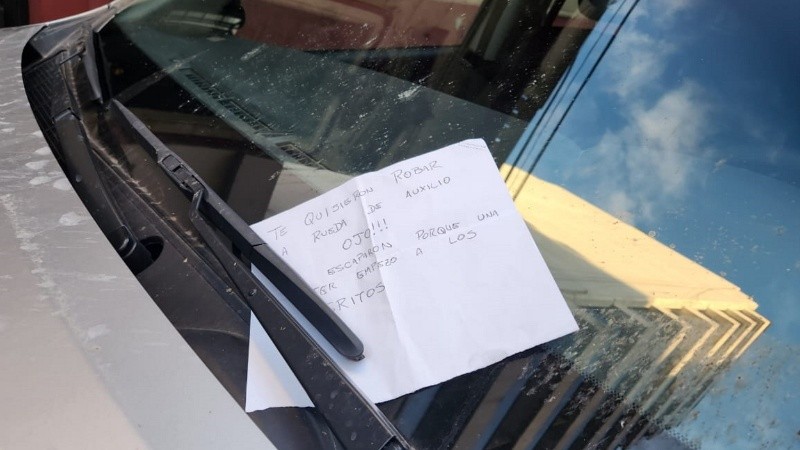 TE QUISIERON ROBAR
A RUEDA DE AUXILIO
OJO!!!
ESCAPARON PORQUE UNA
EMPEZO A LOS
RITOS